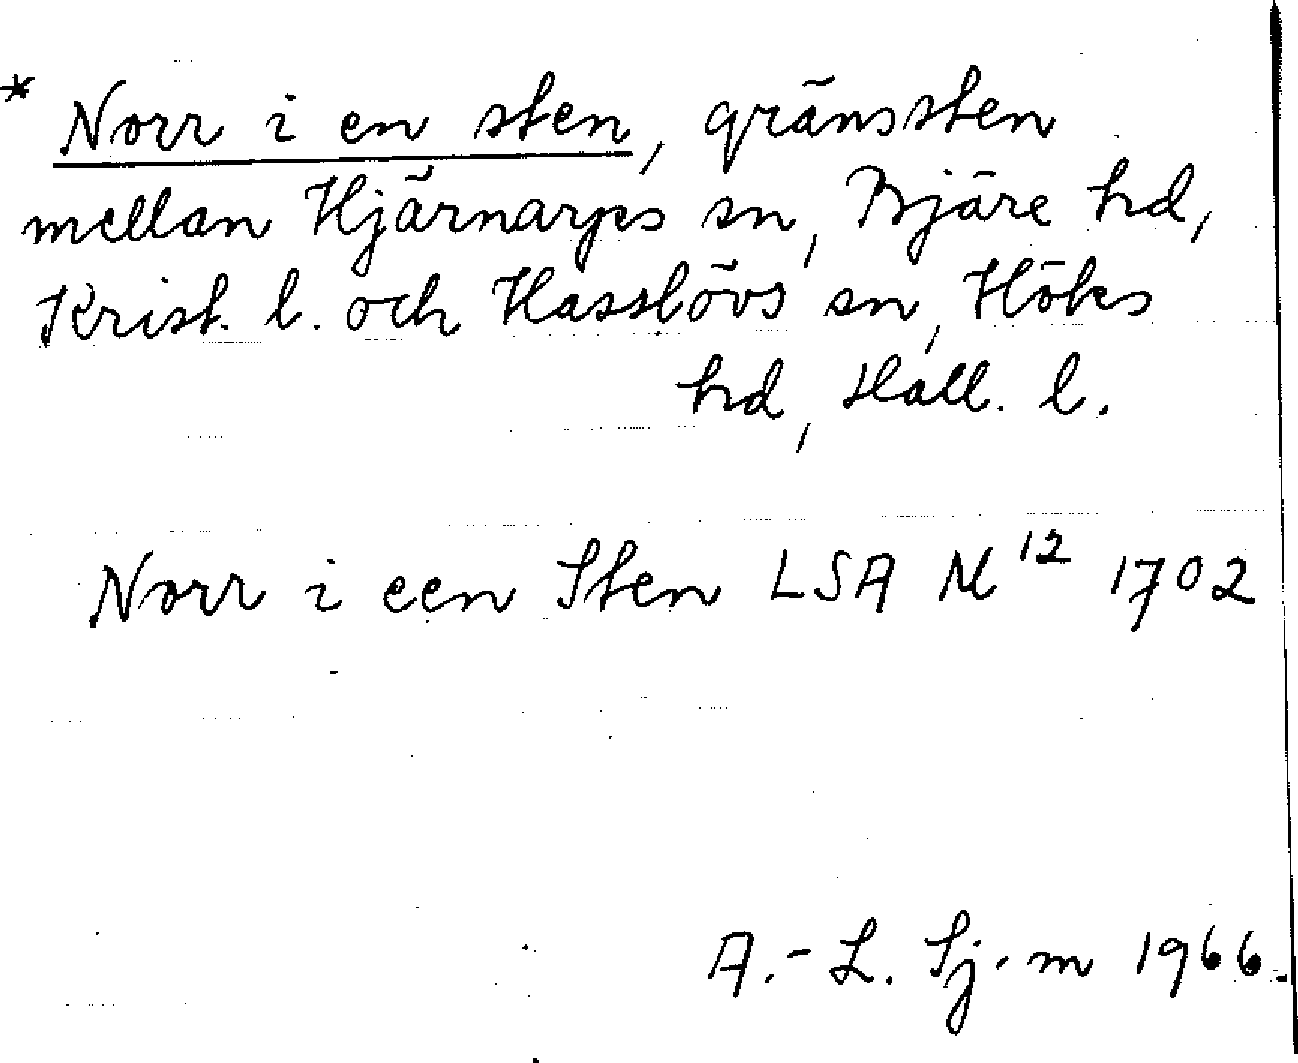 * Norr i en sten, gränssten
mellan Hjärnarps sn, Bjäre hd,
Krist. l. och Hasslövs sn, Höks
hd, Hall. l.
Norr i een Sten LSA M 12 1702
A.-L. Sj-m 1966.